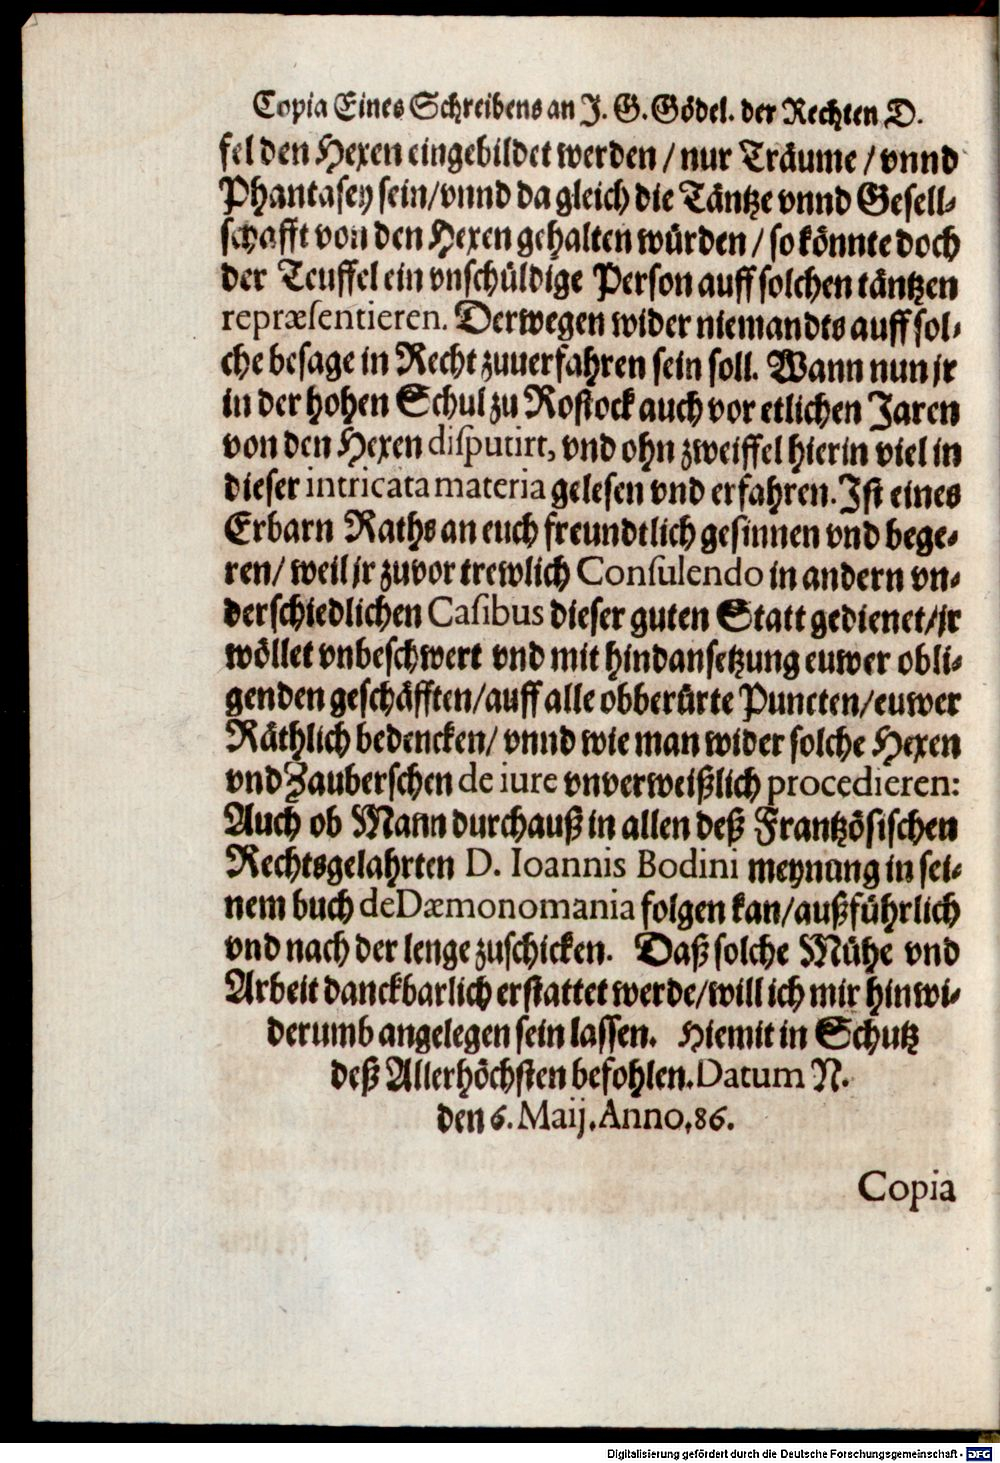 Copia Eines Schreibens an J. G. Gödel. der Rechten D.
fel den Hexen eingebildet werden / nur Träume / vnnd
Phantasey sein/vnnd da gleich die Täntze vnnd Gesell-
schafft von den Hexen gehalten würden / so könnte doch
der Teuffel ein vnschüldige Person auff solchen täntzen
repræsentieren. Derwegen wider niemandts auff sol-
che besage in Recht zuuerfahren sein soll. Wann nun jr
in der hohen Schul zu Rostock auch vor etlichen Jaren
von den Hexen disputirt, vnd ohn zweiffel hierin viel in
dieser intricata materia gelesen vnd erfahren. Ist eines
Erbarn Raths an euch freundtlich gesinnen vnd bege-
ren/ weil jr zuvor trewlich Consulendo in andern vn-
derschiedlichen Casibus dieser guten Statt gedienet/jr
wöllet vnbeschwert vnd mit hindansetzung euwer obli-
genden geschäfften/auff alle obberürte Puncten/euwer
Räthlich bedencken/ vnnd wie man wider solche Hexen
vnd Zauberschen de iure vnverweißlich procedieren:
Auch ob Mann durchauß in allen deß Frantzösischen
Rechtsgelahrten D. Ioannis Bodini meynung in sei-
nem buch de Dæmonomania folgen kan/außführlich
vnd nach der lenge zuschicken. Daß solche Mühe vnd
Arbeit danckbarlich erstattet werde/will ich mir hinwi-
derumb angelegen sein lassen. Hiemit in Schutz
deß Allerhöchsten befohlen. Datum N.
den 6. Maij. Anno, 86.
Copia
Digitalisierung gefördert durch die Deutsche Forschungsgemeinschaft - DFG